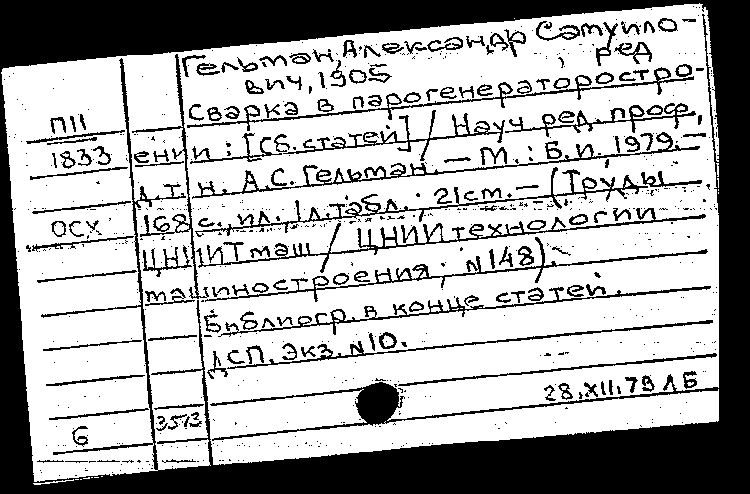 Гельман, Александр Самуило-
вич, 1905 , ред
Сварка в парогенераторостро-
П11
1833 ении : [Сб. статей] / Науч. ред. проф.,
д. т. н. А.С. Гельман. — М. : Б.и., 1979. —
ОСХ 168 с., ил., 1 л. табл. ; 21 см. — (Труды
ЦНИИТмаш / ЦНИИ технологии
машиностроения ; N 148).
Библиогр. в конце статей.
ДСП. Экз. N 10.
28.XII.79 ЛБ
6 3513